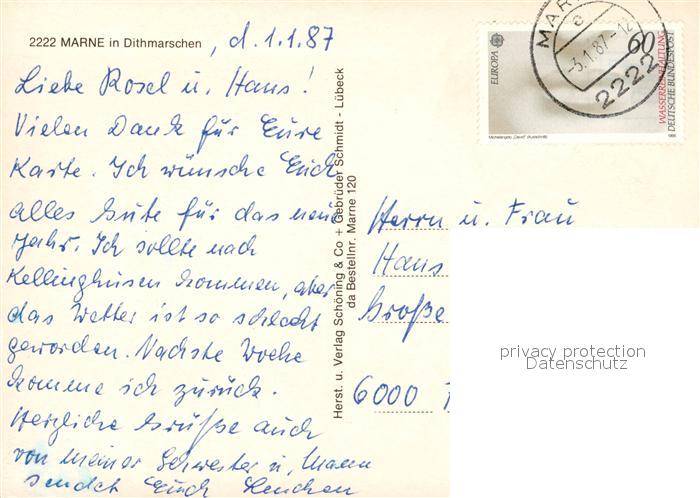 2222 MARNE in Dithmarschen, d. 1.1.87
Liebe Rosel u. Hans!
Vielen Dank für Eure
Karte. Ich wünsche Euch
alles Gute für das neue
Jahr. Ich sollte nach
Kellinghusen kommen, aber
das Wetter ist so schlecht
geworden. Nächste Woche
komme ich zurück.
Herzliche Grüße auch
von meiner Schwester u. Mann
sendet Euch Lenchen
Herst. u. Verlag Schöning & Co + Gebrüder Schmidt - Lübeck
da Bestellnr. Marne 120
EUROPA
60
WASSERREINHALTUNG
DEUTSCHE BUNDESPOST
Michelangelo, "David" (Ausschnitt)
MAR
e
-3.1.87-12
2222
Herrn u. Frau
Hans
Große
6000
privacy protection
Datenschutz